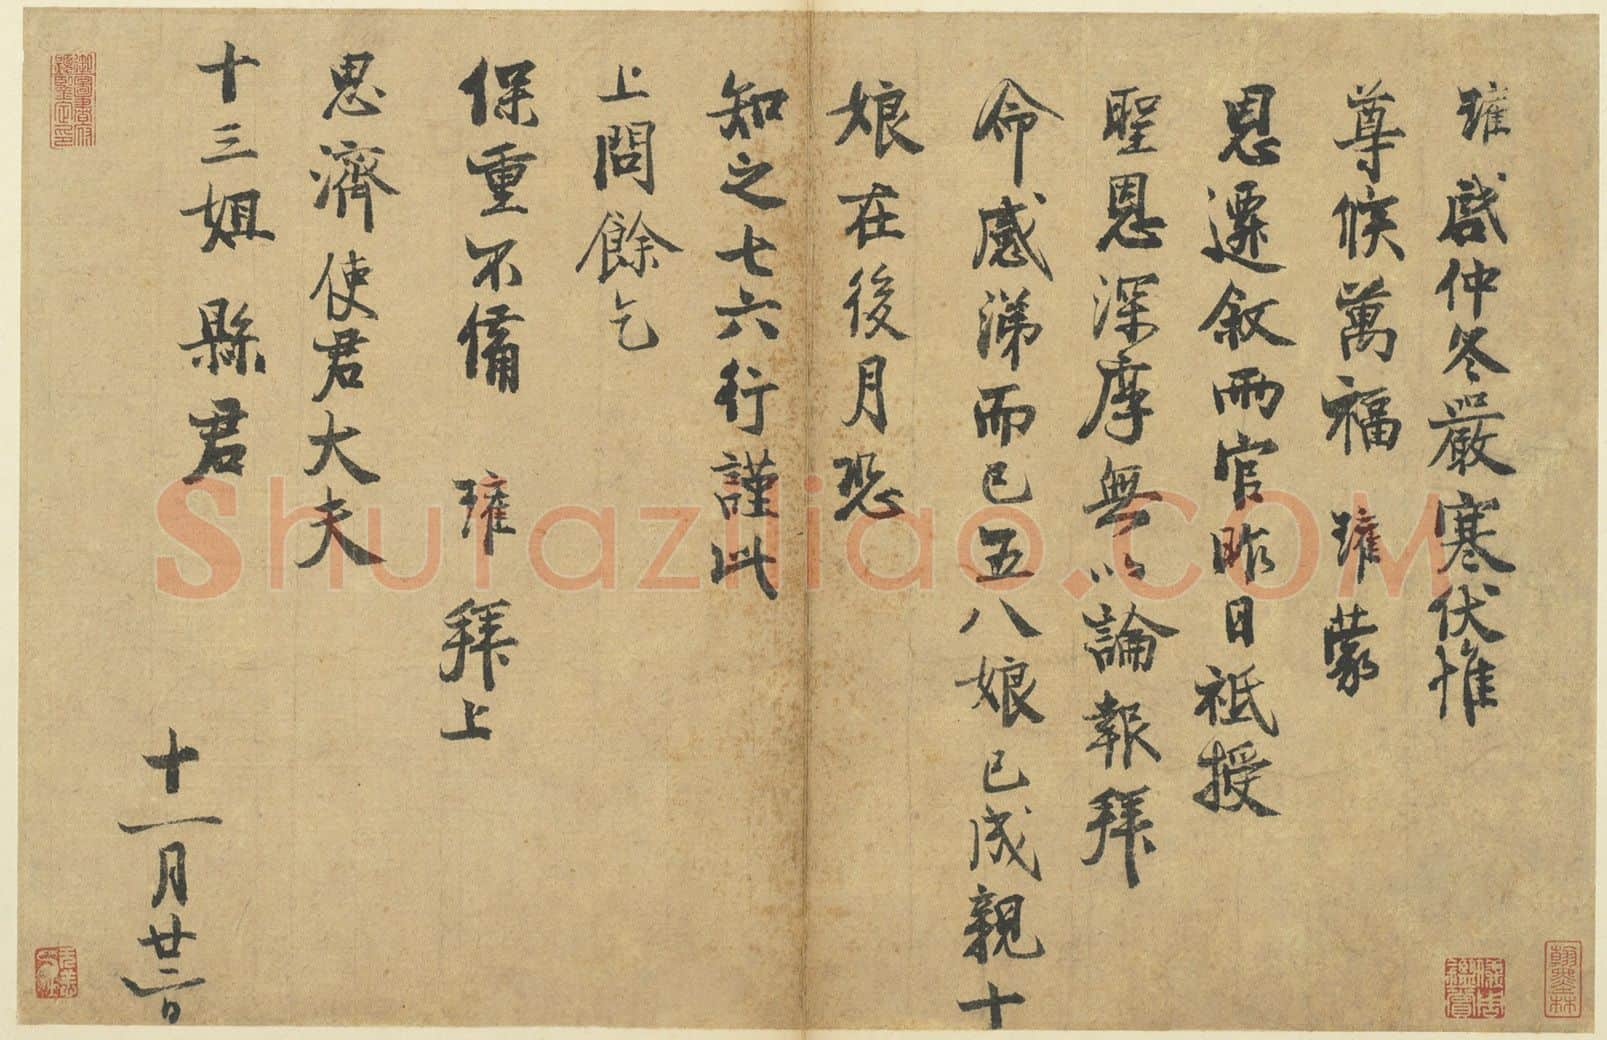 瓘啟仲冬嚴寒伏惟
尊候萬福 瓘蒙
恩遷敘兩官昨日祗授
聖恩深厚無以論報拜
命感涕而已五八娘已成親十
娘在後月恐
知之七六行謹此
上問餘乞
保重不備 瓘 拜上
思濟使君大夫
十三姐 縣君
十一月廿二日
shufaziliao.com